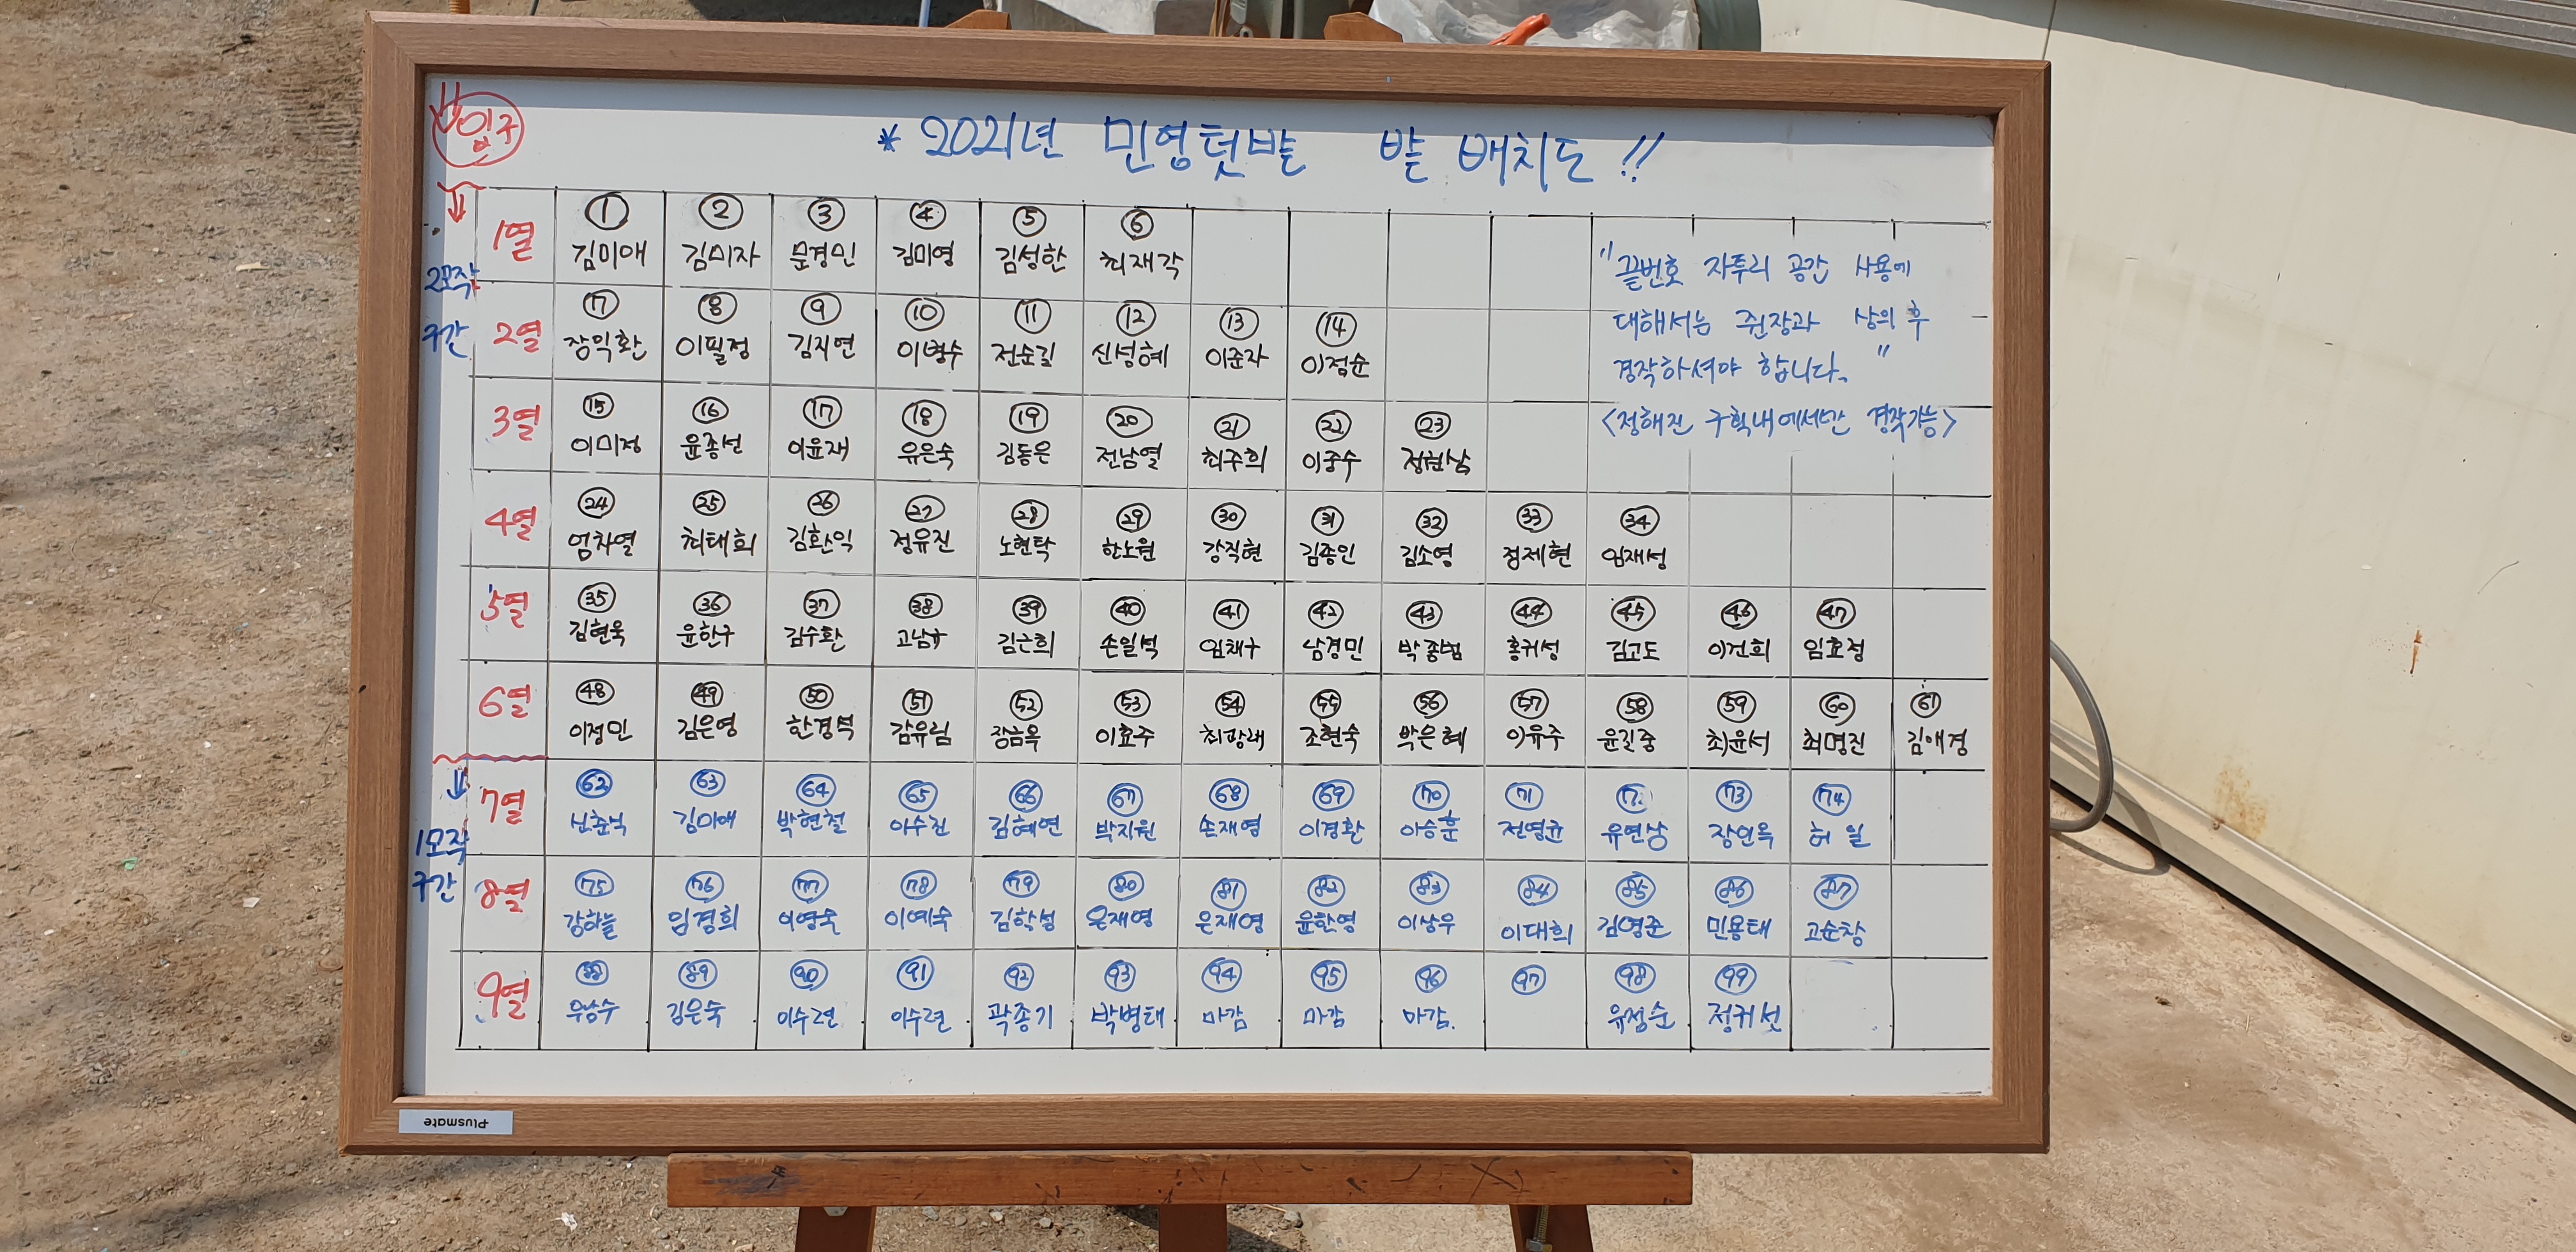 입구
* 2021년 민영텃밭 밭 배치도!!
1열 ① ② ③ ④ ⑤ ⑥
김미애 김미자 문경민 김미영 김성한 최재각
"끝번호 자투리 공간 사용에
대해서는 쥔장과 상의 후
경작하셔야 합니다."
<정해진 구획내에서만 경작가능>
2모작
구간
2열 ⑦ ⑧ ⑨ ⑩ ⑪ ⑫ ⑬ ⑭
장익환 이필정 김지연 이병수 전순길 신성혜 이준자 이점순
3열 ⑮ ⑯ ⑰ ⑱ ⑲ ⑳ ㉑ ㉒ ㉓
이미정 윤종선 이윤재 유은숙 김동은 전남열 최주희 이중수 정현남
4열 ㉔ ㉕ ㉖ ㉗ ㉘ ㉙ ㉚ ㉛ ㉜ ㉝ ㉞
엄차열 최태희 김환익 정유진 노현탁 한노원 강직현 김종인 김소영 정제현 임재성
5열 ㉟ ㊱ ㊲ ㊳ ㊴ ㊵ ㊶ ㊷ ㊸ ㊹ ㊺ ㊻ ㊼
김현욱 윤한구 김수환 고남규 김근희 손일석 임채구 남경민 박종범 홍귀성 김고도 이건희 임효정
6열 ㊽ ㊾ ㊿ 51 52 53 54 55 56 57 58 59 60 61
이정민 김은영 한경석 감유림 장금옥 이효주 최광래 조현숙 박은혜 이유주 윤길중 최윤서 최명진 김애경
7열 62 63 64 65 66 67 68 69 70 71 72 73 74
신춘식 김미애 박현철 이수진 김혜연 박지원 손재영 이경환 이승훈 전영균 유연상 장인옥 허일
1모작
구간
8열 75 76 77 78 79 80 81 82 83 84 85 86 87
강하늘 임경희 이영숙 이예숙 김학성 은재영 은재영 윤한영 이상우 이대희 김영준 민용태 고순창
9열 88 89 90 91 92 93 94 95 96 97 98 99
우승수 김은숙 이수련 이수련 곽종기 박병태 마감 마감 마감. 유정순 정귀선
Plusmate